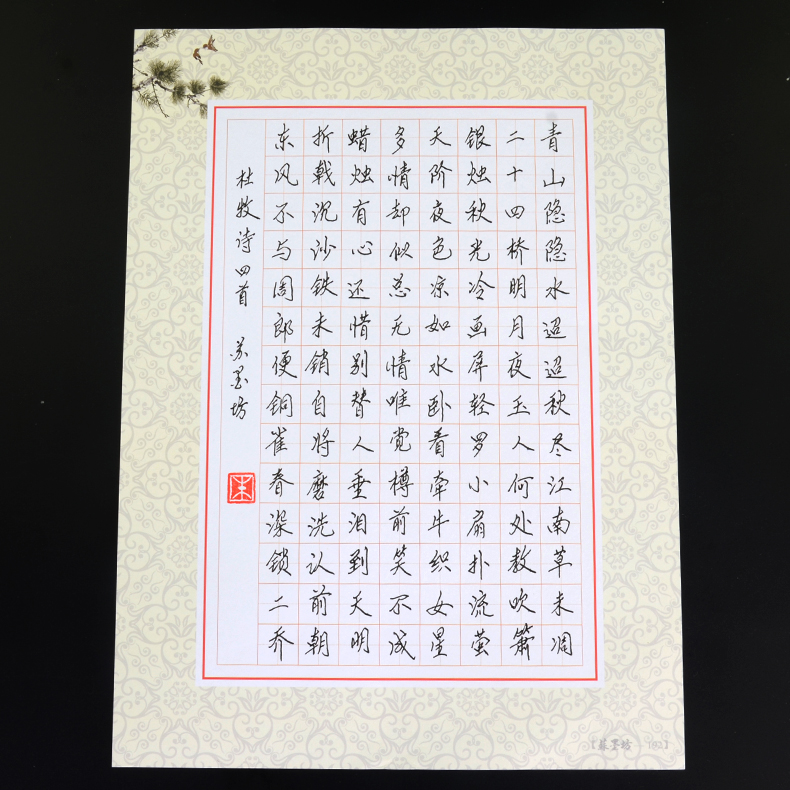 青山隐隐水迢迢秋尽江南草未凋
二十四桥明月夜玉人何处教吹箫
银烛秋光冷画屏轻罗小扇扑流萤
天阶夜色凉如水卧看牵牛织女星
多情却似总无情唯觉樽前笑不成
蜡烛有心还惜别替人垂泪到天明
折戟沉沙铁未销自将磨洗认前朝
东风不与周郎便铜雀春深锁二乔
杜牧诗四首 苏墨坊
【苏墨坊